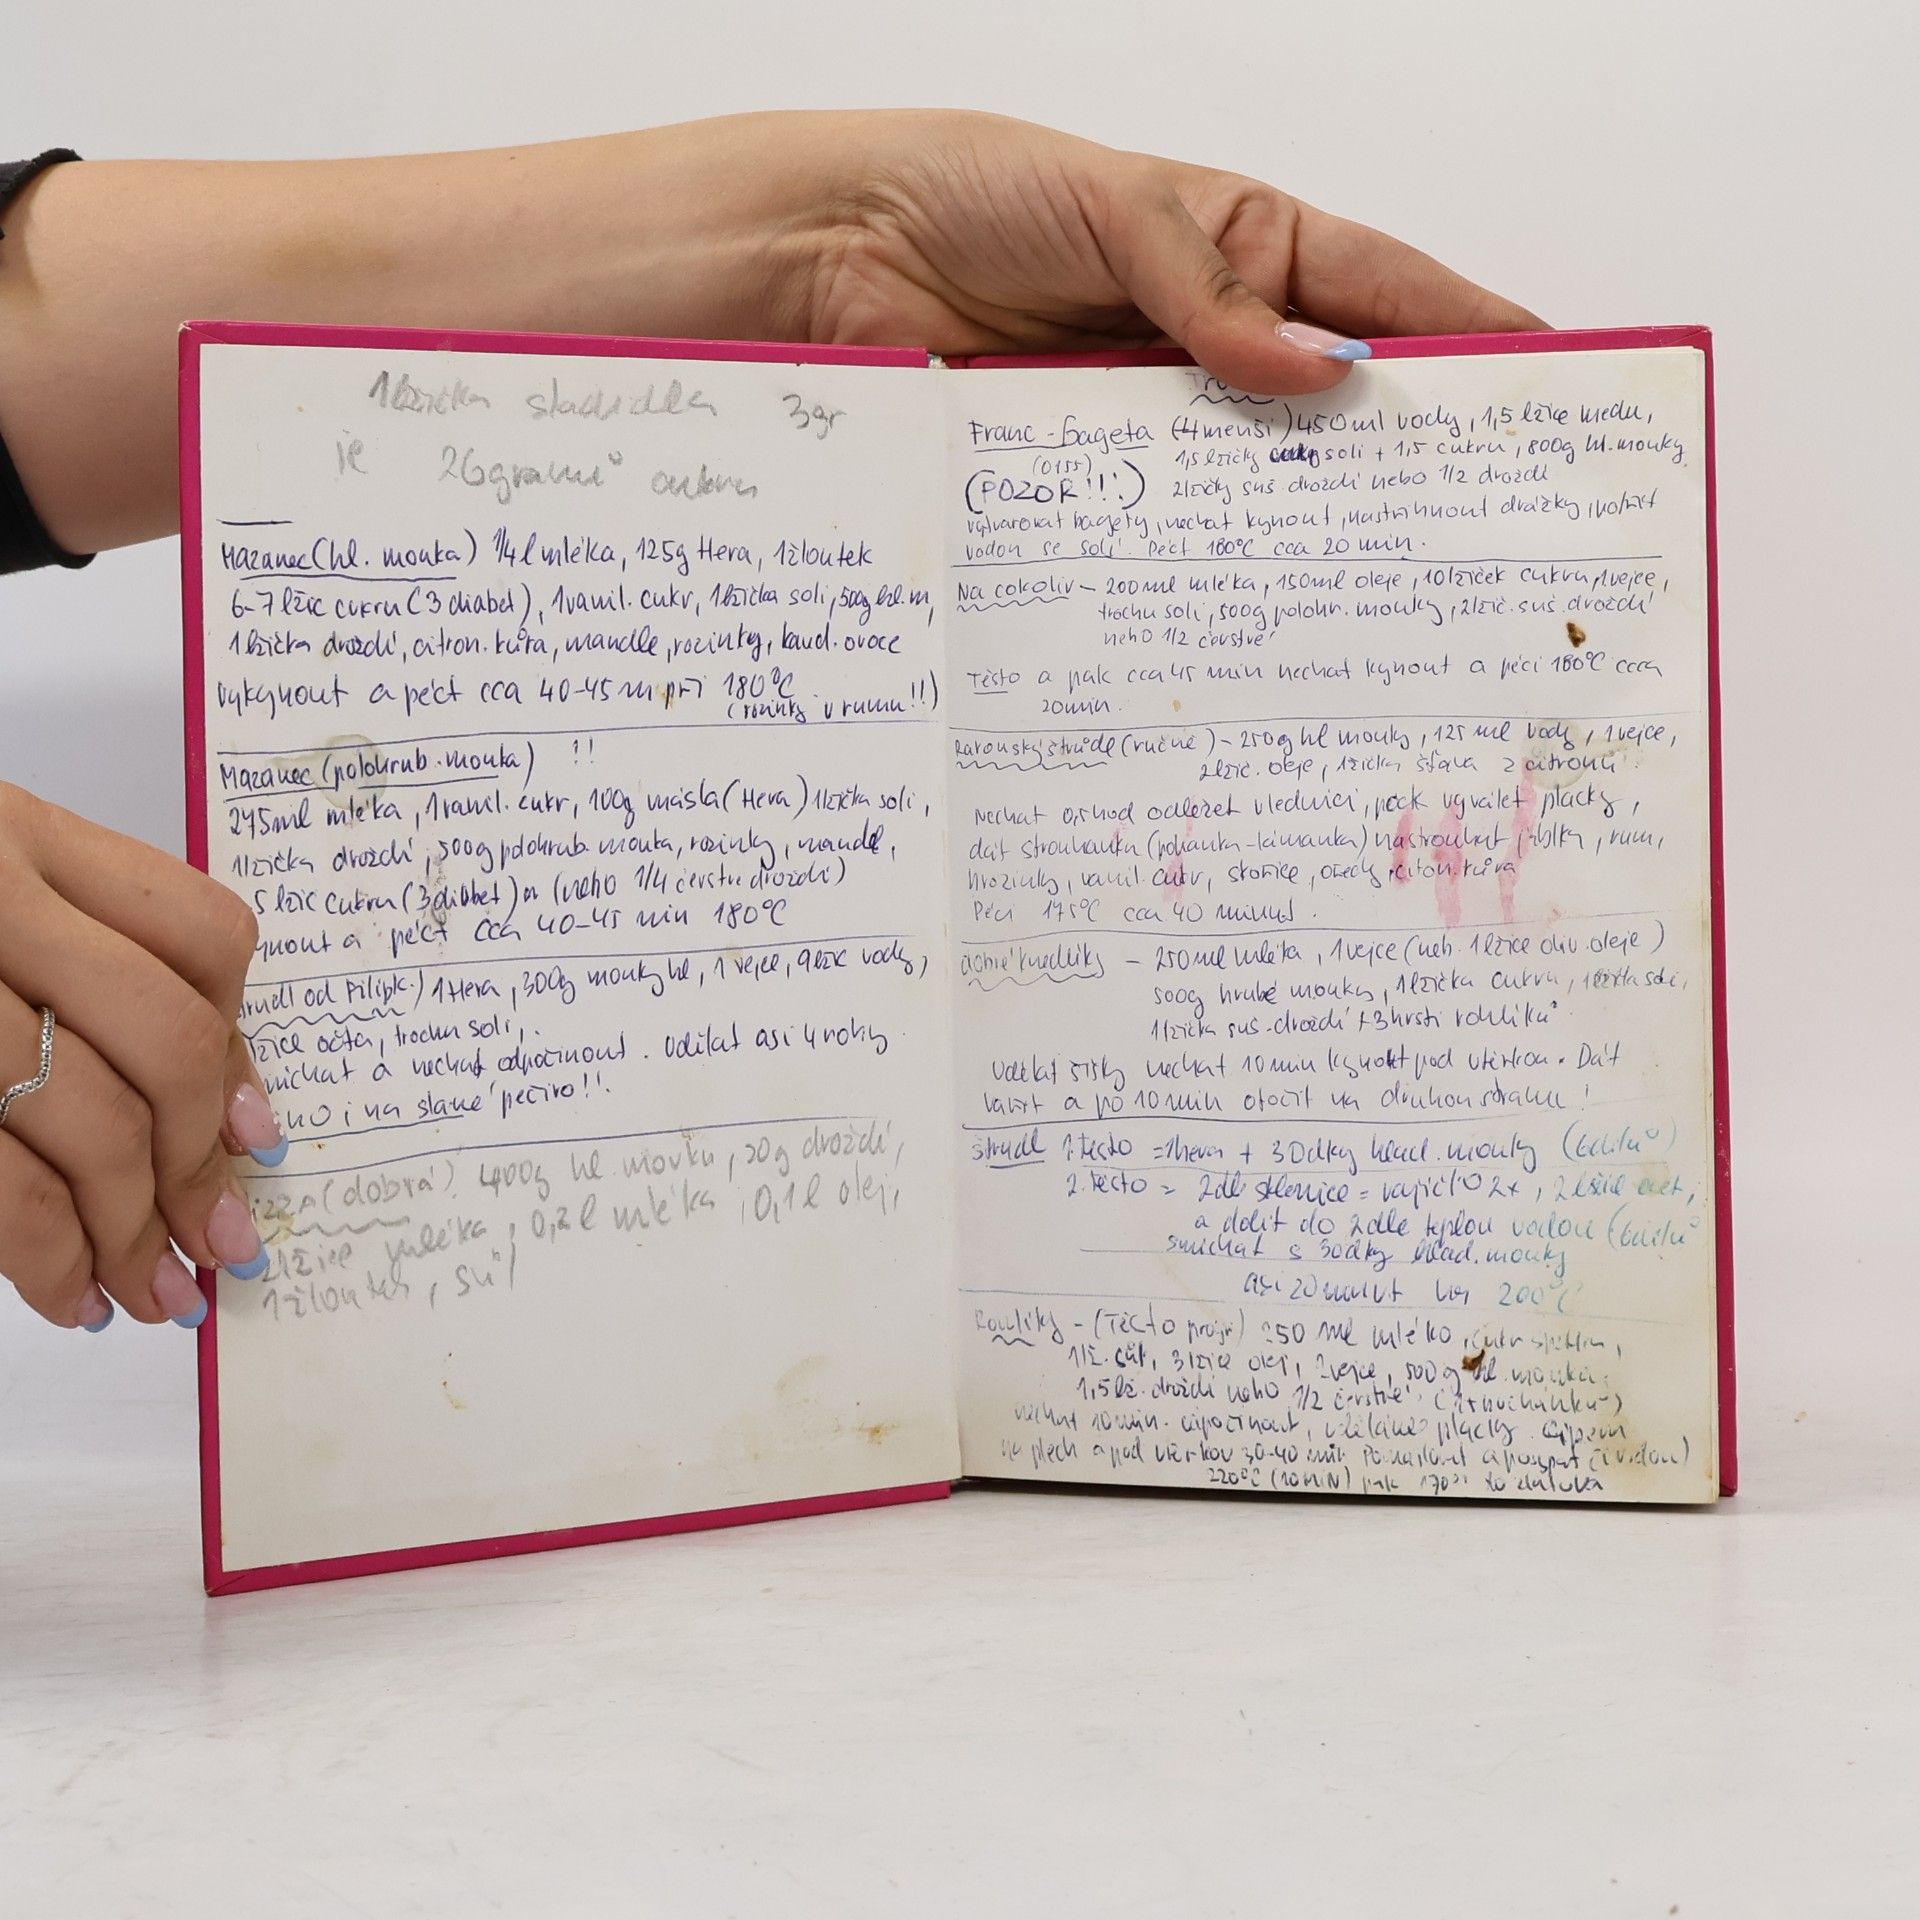 1 lžička sladidla 3gr
je 26gramů cukru
Mazanec (hl. mouka) 1/4 l mléka, 125g Hera, 1 žloutek
6-7 lžic cukru (3 diabet), 1 vanil. cukr, 1 lžička soli, 500g hl. m,
1 lžička droždí, citron. kůra, mandle, rozinky, kand. ovoce
vykynout a péct cca 40-45 m při 180°C
(rozinky v rumu!!)
Mazanec (polohrub. mouka) !!
275ml mléka, 1 vanil. cukr, 100g másla (Hera) 1 lžička soli,
1 lžička droždí, 500g polohrub. mouka, rozinky, mandle,
5 lžic cukru (3 diabet) (neho 1/4 čerstvé droždí)
ynout a péct cca 40-45 min 180°C
rudl od Filipk.) 1 Hera, 300g mouky hl, 1 vejce, 9 lžic vody,
lžíce octa, trochu soli,
míchat a nechat odpočinout. Udělat asi 4 rohy.
no i na slané pečivo!!.
izza (dobrá). 400g hl. mouku, 20g droždí,
2 lžíce mléka, 0,2 l mléka, 0,1 l olej,
1 žloutek, sůl
Franc-bageta (4 menší) 450ml vody, 1,5 lžíce medu,
(0155) 1,5 lžičky soli + 1,5 cukru, 800g hl. mouky
(POZOR!!!) 2 lžičky suš. droždí nebo 1/2 droždí
vytvarovat bagety, nechat kynout, nastřihnout drážky, potřít
vodou se solí. Péct 180°C cca 20 min.
Na cokoliv - 200ml mléka, 150ml oleje, 10 lžiček cukru, 1 vejce,
trochu soli, 500g polohr. mouky, 2 lžič. suš. droždí
neho 1/2 čerstvé
Těsto a pak cca 45 min nechat kynout a péci 180°C cca
20 min.
(ručně) - 250g hl mouky, 125 ml vody, 1 vejce,
2 lžíc. oleje, 1 lžička šťáva z citronů.
Nechat 0,5 hod odležet v lednici, pak vyválet placky,
dát strouhanku nastrouhat jablka, rum,
hrozinky, vanil. cukr, skořice, ořechy, citon. kůra
Péci 175°C cca 40 minut.
dobré knedlíky - 250ml mléka, 1 vejce (neb. 1 lžíce oliv. oleje)
500g hrubé mouky, 1 lžička cukru, 1 lžička soli,
1 lžička suš. droždí + 3 hrsti rohlíků.
Udělat šišky nechat 10 min kynout pod utěrkou. Dát
vařit a po 10 min otočit na druhou stranu!
štrudl 1. těsto = 1 hera + 30dky hlad. mouky
2. těsto = 2dl sklenice = vajíčko 2x, 2 lžíce ocet,
a dolít do 2dle teplou vodou
smíchat s 30dky hlad. mouky
asi 20 minut na 200°C
Rohlíky - (Těsto progr) 250 ml mléko,
1 lž. sůl, 3 lžíce olej, 500g hl. mouka,
1,5 lž. droždí neho 1/2 čerstvé
nechat 10 min. odpočinout, placky
na plech a pod utěrkou 30-40 min
220°C (10 MIN) pak 170°